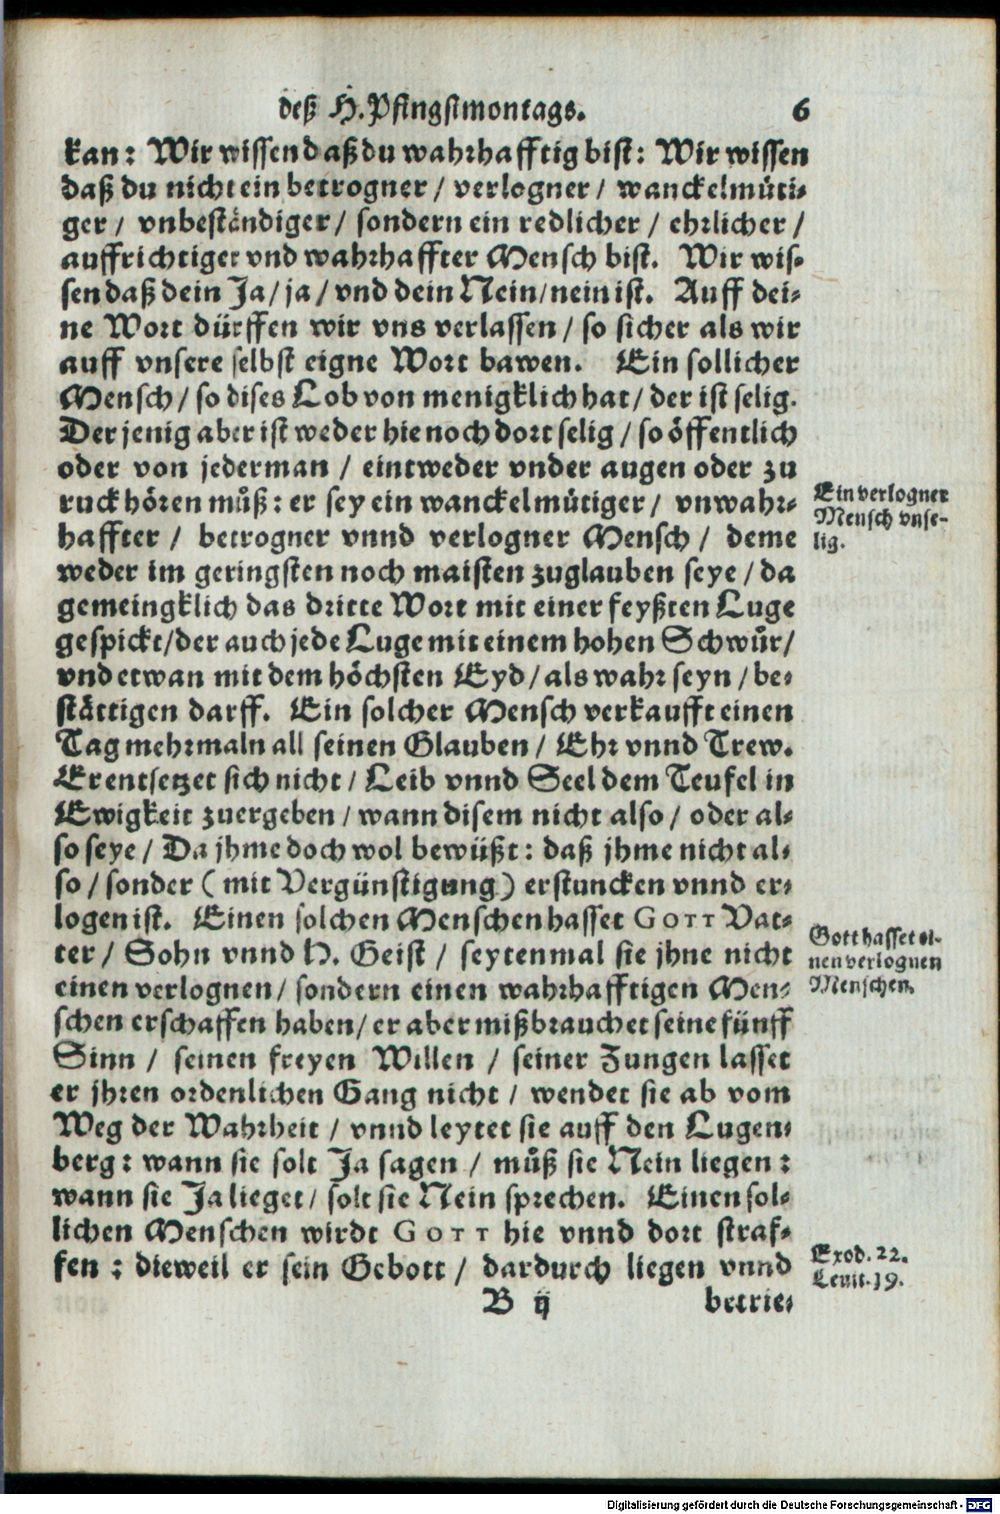 deß H. Pfingstmontags. 6
kan: Wir wissen daß du wahrhafftig bist: Wir wissen
daß du nicht ein betrogner / verlogner / wanckelmüti-
ger / vnbeständiger / sondern ein redlicher / ehrlicher /
auffrichtiger vnd wahrhaffter Mensch bist. Wir wis-
sen daß dein Ja / ja / vnd dein Nein / nein ist. Auff dei-
ne Wort dürffen wir vns verlassen / so sicher als wir
auff vnsere selbst eigne Wort bawen. Ein sollicher
Mensch / so dises Lob von menigklich hat / der ist selig.
Der jenig aber ist weder hie noch dort selig / so öffentlich
oder von jederman / eintweder vnder augen oder zu
ruck hören muͦß: er sey ein wanckelmütiger / vnwahr-
haffter / betrogner vnnd verlogner Mensch / deme
weder im geringsten noch maisten zuglauben seye / da
gemeingklich das dritte Wort mit einer feyßten Luge
gespickt / der auch jede Luge mit einem hohen Schwuͦr /
vnd etwan mit dem höchsten Eyd / als wahr seyn / be-
stättigen darff. Ein solcher Mensch verkaufft einen
Tag mehrmaln all seinen Glauben / Ehr vnnd Trew.
Er entsetzet sich nicht / Leib vnnd Seel dem Teufel in
Ewigkeit zuergeben / wann disem nicht also / oder al-
so seye / Da jhme doch wol bewüßt: daß jhme nicht al-
so / sonder (mit Vergünstigung) erstuncken vnnd er-
logen ist. Einen solchen Menschen hasset GOTT Vat-
ter / Sohn vnnd H. Geist / seytenmal sie jhne nicht
einen verlognen / sondern einen wahrhafftigen Men-
schen erschaffen haben / er aber mißbrauchet seine fünff
Sinn / seinen freyen Willen / seiner Zungen lasset
er jhren ordenlichen Gang nicht / wendet sie ab vom
Weg der Wahrheit / vnnd leytet sie auff den Lugen-
berg: wann sie solt Ja sagen / muͦß sie Nein liegen:
wann sie Ja lieget / solt sie Nein sprechen. Einen sol-
lichen Menschen wirdt GOTT hie vnnd dort straf-
fen: dieweil er sein Gebott / dardurch liegen vnnd
B ij betrie-
Ein verlogner
Mensch vnse-
lig.
Gott hasset ei-
nen verlognen
Menschen.
Exod. 22.
Leuit. 19.
Digitalisierung gefördert durch die Deutsche Forschungsgemeinschaft - DFG